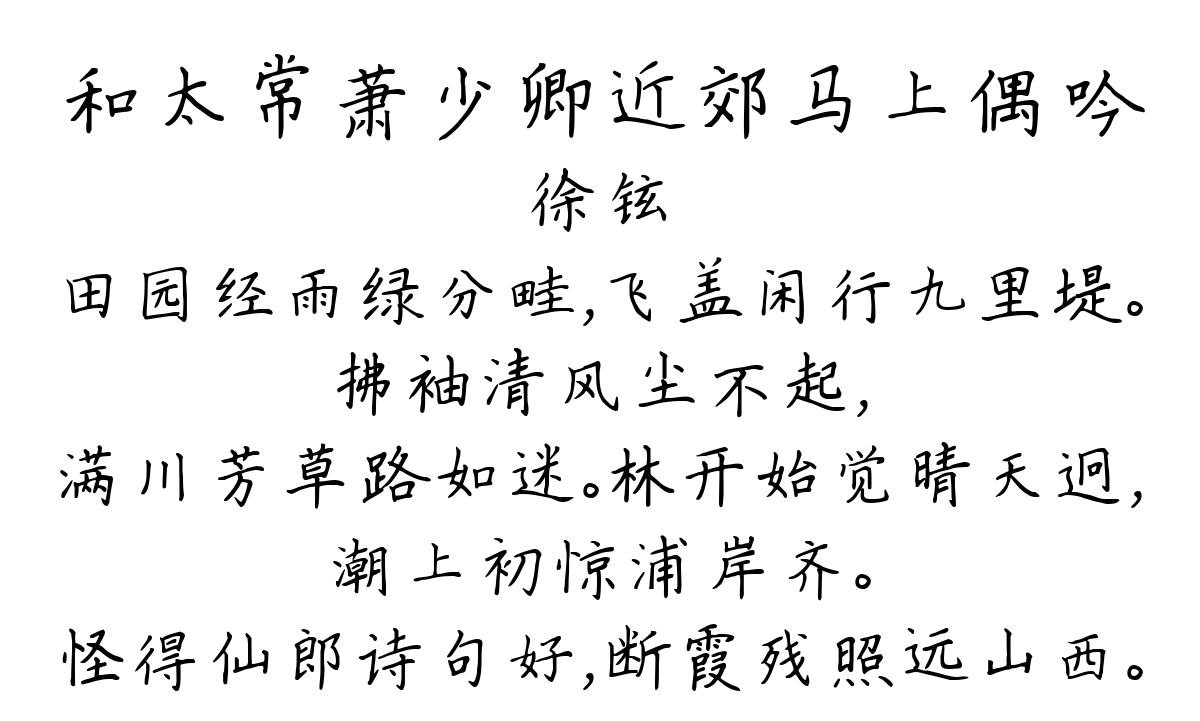 和太常萧少卿近郊马上偶吟
徐铉
田园经雨绿分畦,飞盖闲行九里堤。
拂袖清风尘不起,
满川芳草路如迷。林开始觉晴天迥,
潮上初惊浦岸齐。
怪得仙郎诗句好,断霞残照远山西。